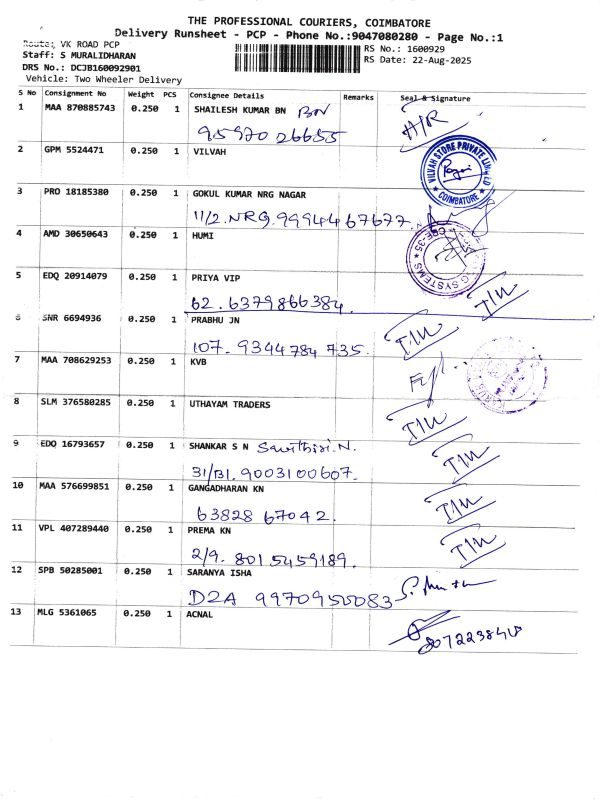 THE PROFESSIONAL COURIERS, COIMBATORE
Delivery Runsheet - PCP - Phone No.:9047080280 - Page No.:1
Route: VK ROAD PCP
RS No.: 1600929
Staff: S MURALIDHARAN
RS Date: 22-Aug-2025
DRS No.: DCJB160092901
Vehicle: Two Wheeler Delivery
S No Consignment No Weight PCS Consignee Details Remarks Seal & Signature
1 MAA 870885743 0.250 1 SHAILESH KUMAR BN BN
9597026655 A/R
2 GPM 5524471 0.250 1 VILVAH
VILVAH STORE PRIVATE LIMITED COIMBATORE
3 PRO 18185380 0.250 1 GOKUL KUMAR NRG NAGAR
11/2. NRG. 9994467677.
4 AMD 30650643 0.250 1 HUMI
CBE-35 SYSTEMS
5 EDQ 20914079 0.250 1 PRIYA VIP
62. 6379866384.
6 SNR 6694936 0.250 1 PRABHU JN
107. 9344784735.
7 MAA 708629253 0.250 1 KVB
8 SLM 376580285 1 UTHAYAM TRADERS
9 EDQ 16793657 0.250 1 SHANKAR S N Savithiri.N.
31/B1. 9003100607.
10 MAA 576699851 0.250 1 GANGADHARAN KN
63828 67042.
11 VPL 407289440 0.250 1 PREMA KN
2/9. 8015459189.
12 SPB 50285001 0.250 1 SARANYA ISHA
D2A 9970950083
13 MLG 5361065 0.250 1 ACNAL